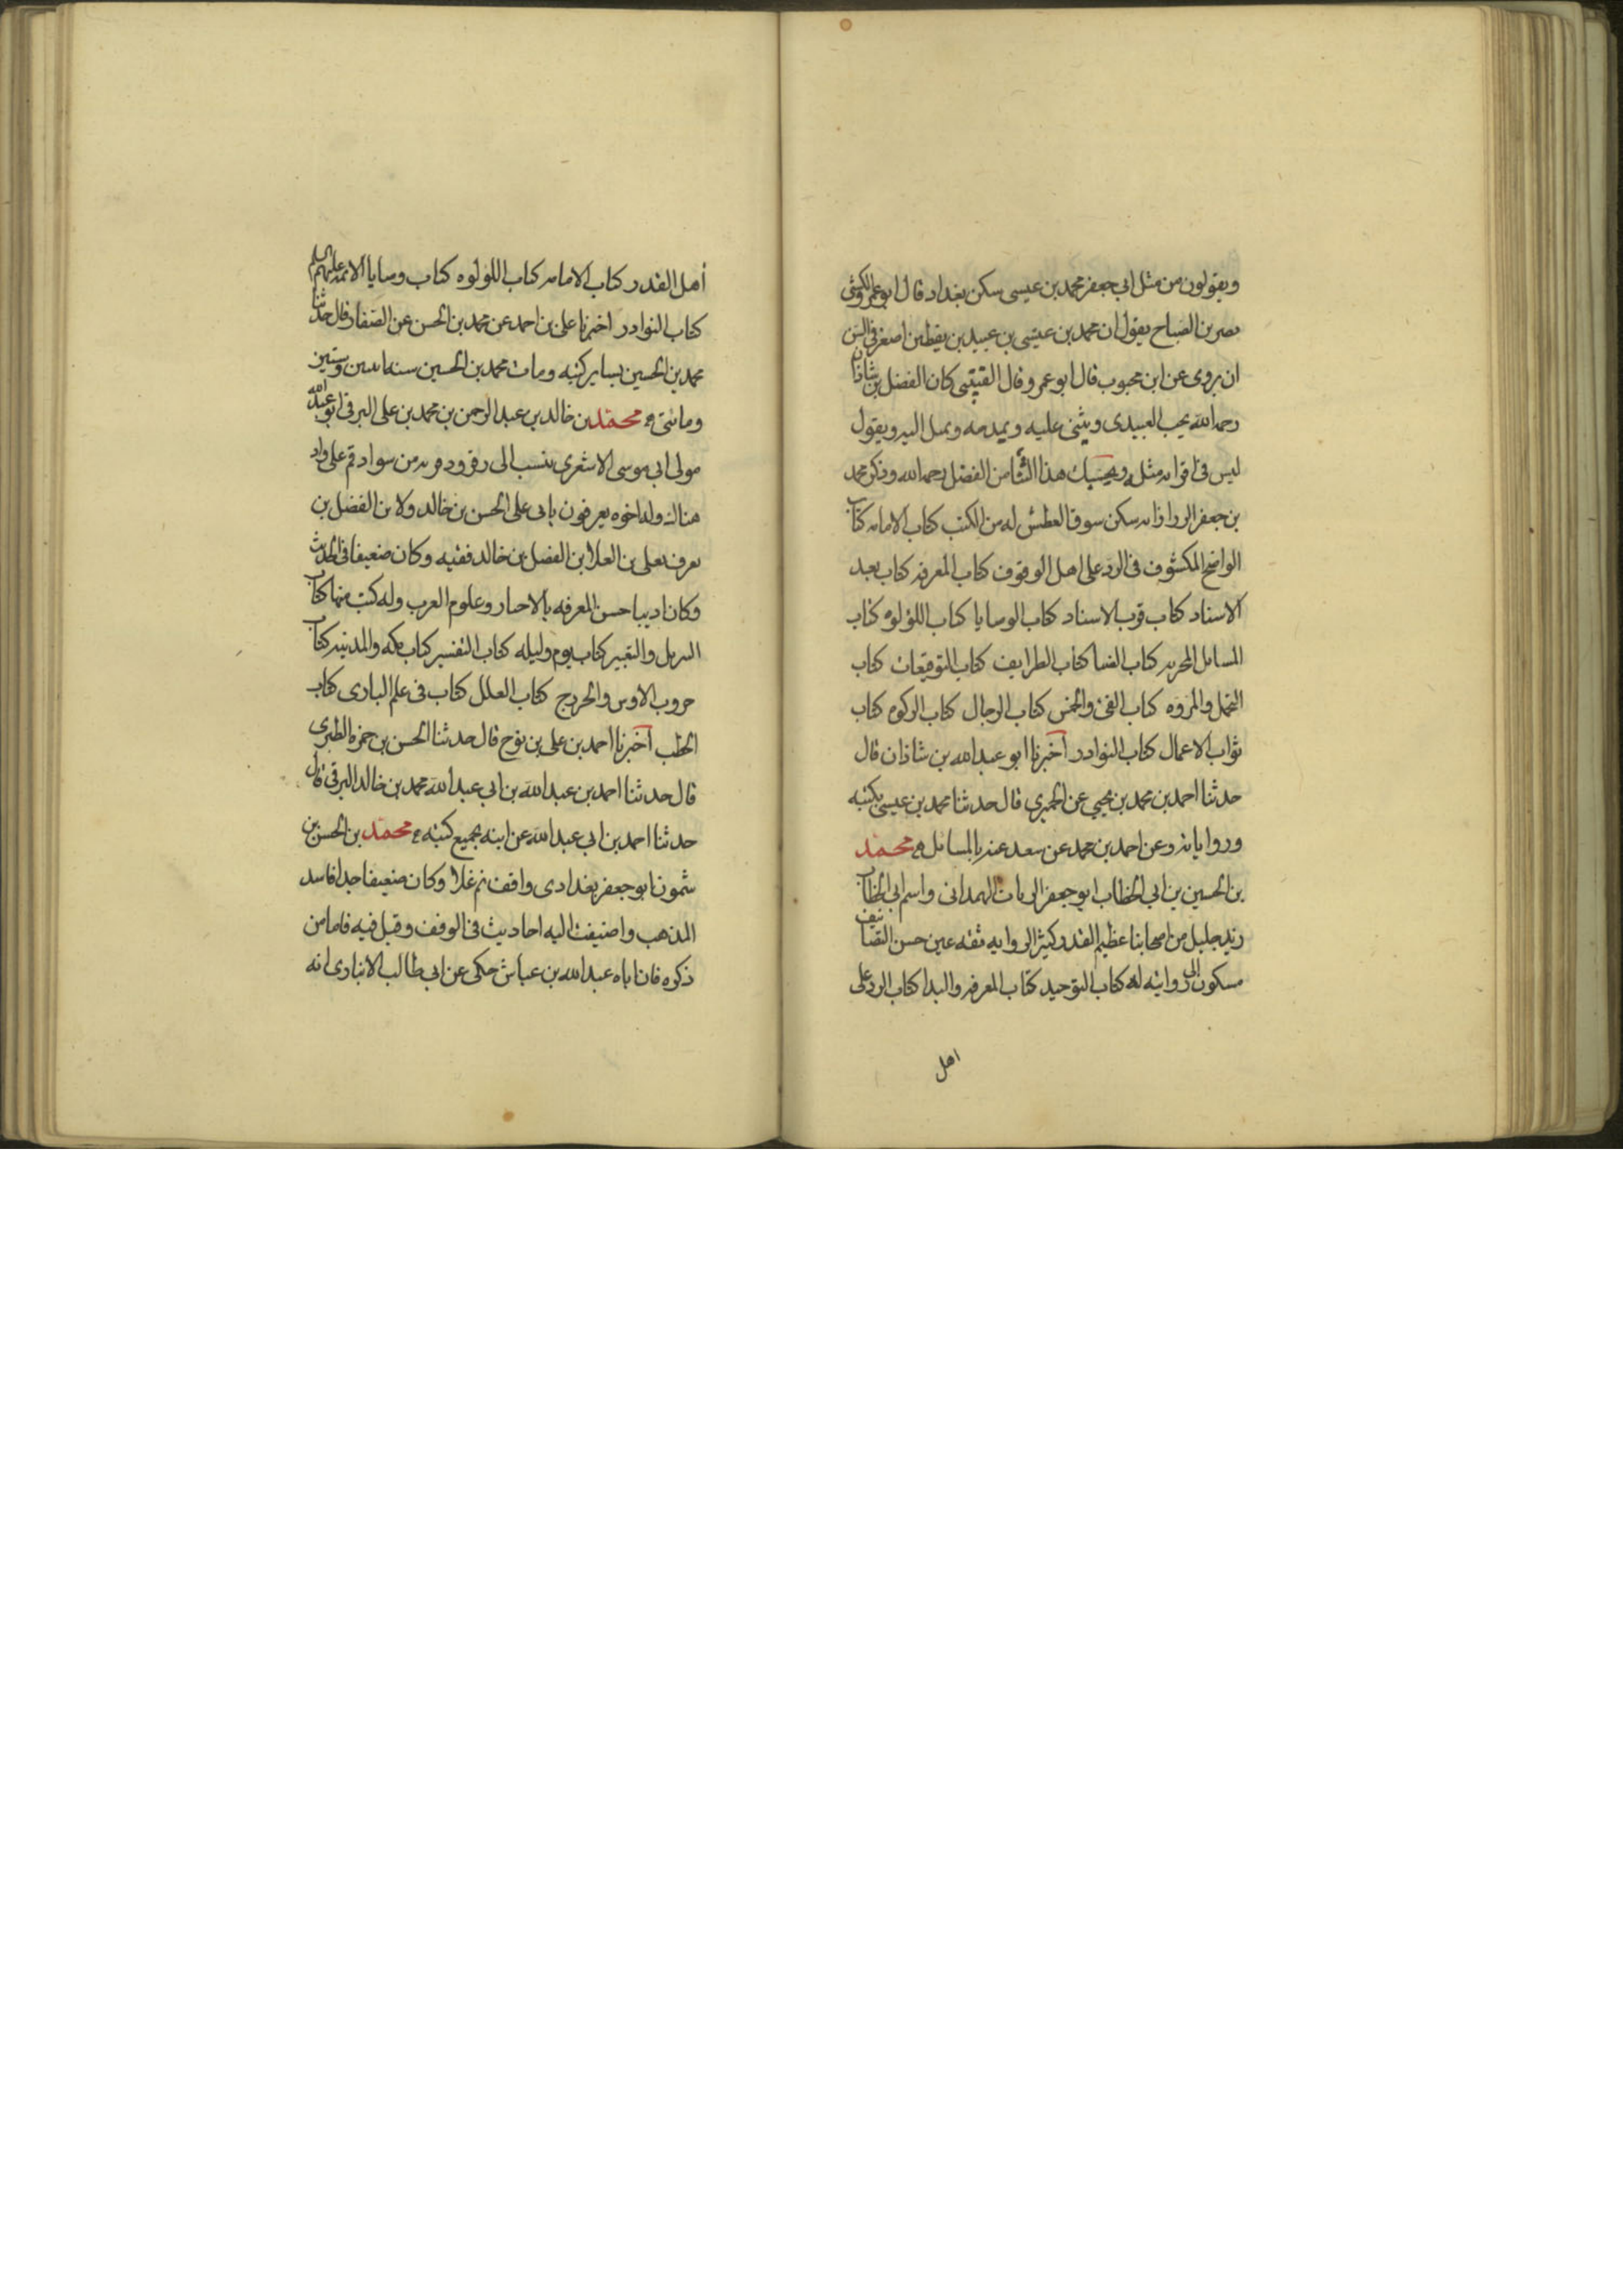 ويقولون من مثل ابي جعفر محمد بن عيسى سكن بغداد قال ابو عمرو الكشى
نصر بن الصباح يقول ان محمد بن عيسى بن عبيد بن يقطين اصغر في السن
ان يروى عن ابن محبوب قال ابو عمرو قال القتيبى كان الفضل بن شاذان
رحمه الله يحب العبيدى ويثنى عليه ويمدحه ويميل اليه ويقول
ليس في اقرانه مثله وبحسبك هذا الثنا من الفضل رحمه الله وذكر محمد
بن جعفر الرزاز انه سكن سوق العطش له من الكتب كتاب الامامه كتاب
الواضح المكشوف في الرد على اهل الوقوف كتاب المعرفه كتاب بعد
الاسناد كتاب قرب الاسناد كتاب الوصايا كتاب اللؤلؤه كتاب
المسايل المحربه كتاب الضيا كتاب الطرايف كتاب التوقيعات كتاب
التجمل والمروه كتاب الفئ والخمس كتاب الرجال كتاب الزكوه كتاب
ثواب الاعمال كتاب النوادر اخبرنا ابو عبد الله بن شاذان قال
حدثنا احمد بن محمد بن يحيى عن الحميري قال حدثنا محمد بن عيسى بكتبه
ورواياته وعن احمد بن محمد عن سعد عنه بالمسايل محمد
بن الحسين بن ابي الخطاب ابو جعفر الزيات الهمدانى واسم ابي الخطاب
زيد جليل من اصحابنا عظيم القدر كثير الروايه ثقه عين حسن التصانيف
مسكون الى روايته له كتاب التوحيد كتاب المعرفه والبدا كتاب الرد على
اهل
أهل القدر كتاب الامامه كتاب اللؤلوه كتاب وصايا الائمه عليهم السلم
كتاب النوادر اخبرنا على بن احمد عن محمد بن الحسن عن الصفار قال حدثنا
محمد بن الحسين بساير كتبه ومات محمد بن الحسين سنه اثنين وستين
ومائتى محمد بن خالد بن عبد الرحمن بن محمد بن على البرقى ابو عبد الله
مولى ابى موسى الاشعرى ينسب الى برقرود قريه من سواد قم على واد
هناك وله اخوه يعرفون بابى على الحسن بن خالد ولابن الفضل بن
يعرف بعلى بن العلا بن الفضل بن خالد فقيه وكان ضعيفا فى الحديث
وكان اديبا حسن المعرفه بالاخبار وعلوم العرب وله كتب منها كتاب
التنزيل والتعبير كتاب يوم وليله كتاب التفسير كتاب مكه والمدينه كتاب
حروب الاوس والخزرج كتاب العلل كتاب فى علم البارى كتاب
الخطب اخبرنا احمد بن على بن نوح قال حدثنا الحسن بن حمزه الطبرى
قال حدثنا احمد بن عبد الله بن ابي عبد الله محمد بن خالد البرقى قال
حدثنا احمد بن ابي عبد الله عن ابيه بجميع كتبه محمد بن الحسن بن
شمون ابو جعفر بغدادى واقف ثم غلا وكان ضعيفا جدا فاسد
المذهب واضيفت اليه احاديث فى الوقف وقيل فيه فاما من
ذكره فان اباه عبد الله بن عباش حكى عن ابى طالب الانبارى انه